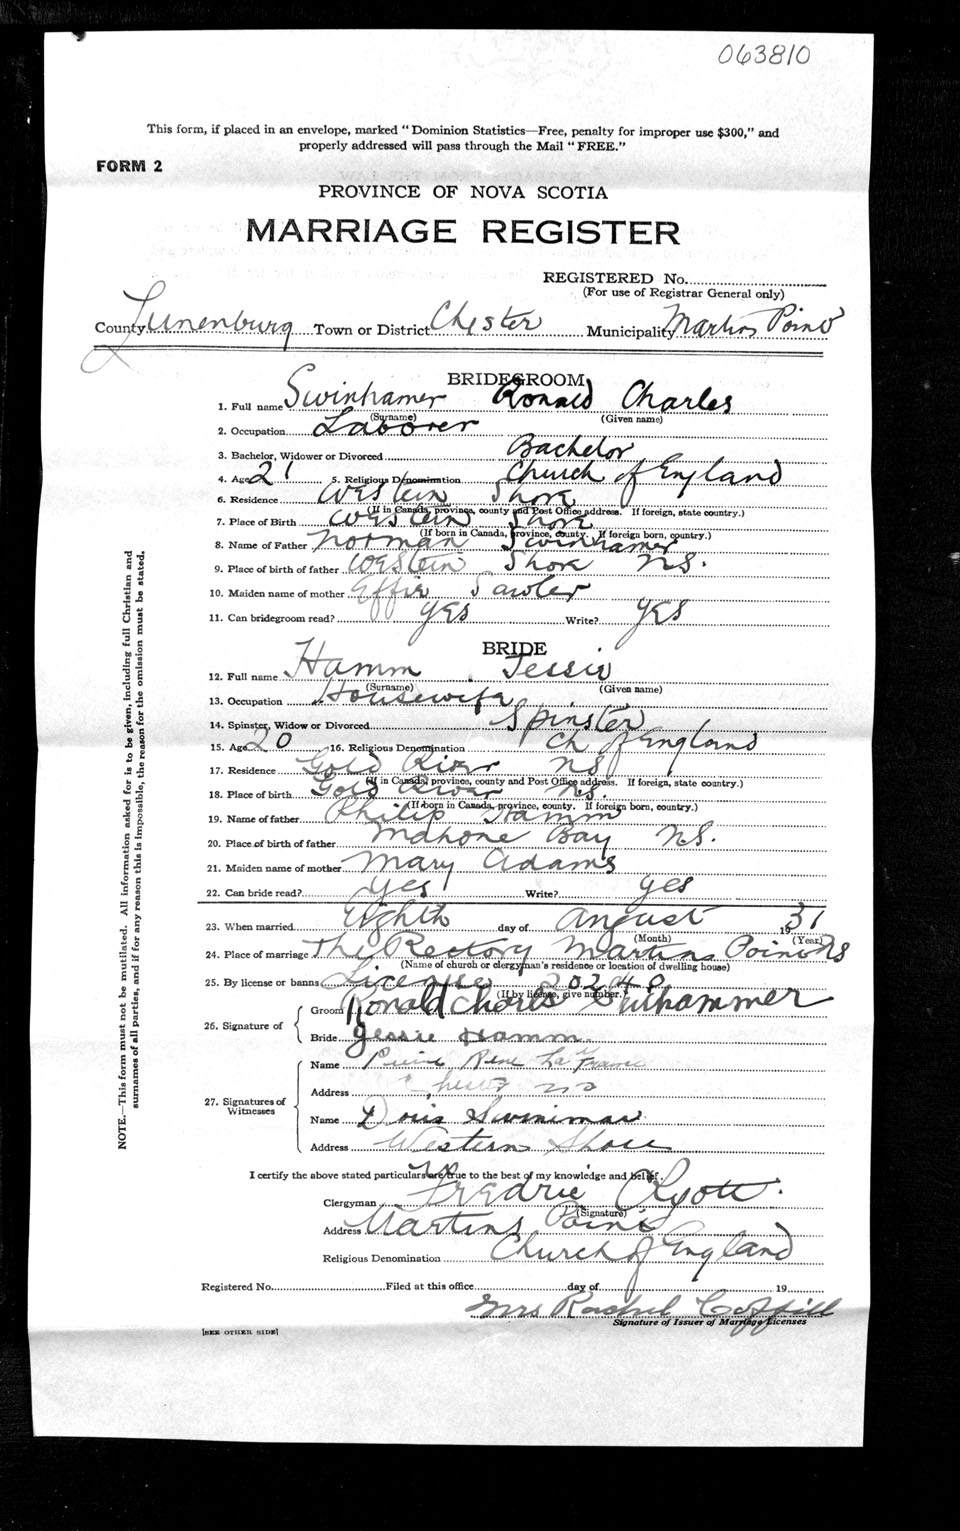 063810
This form, if placed in an envelope, marked "Dominion Statistics—Free, penalty for improper use $300," and
properly addressed will pass through the Mail "FREE."
FORM 2
PROVINCE OF NOVA SCOTIA
MARRIAGE REGISTER
REGISTERED No.
(For use of Registrar General only)
County Lunenburg Town or District Chester Municipality Martins Point
BRIDEGROOM
1. Full name Swinhamer Ronald Charles
(Surname) (Given name)
2. Occupation Laborer
3. Bachelor, Widower or Divorced Bachelor
4. Age 21 5. Religious Denomination Church of England
6. Residence Western Shore
(If in Canada, province, county and Post Office address. If foreign, state country.)
7. Place of Birth Western Shore
(If born in Canada, province, county. If foreign born, country.)
8. Name of Father Norman Swinhamer
9. Place of birth of father Western Shore NS.
10. Maiden name of mother Effie Sawler
11. Can bridegroom read? yes Write? yes
BRIDE
12. Full name Hamm Jessie
(Surname) (Given name)
13. Occupation Housewife
14. Spinster, Widow or Divorced Spinster
15. Age 20 16. Religious Denomination Ch of England
17. Residence Gold River NS
(If in Canada, province, county and Post Office address. If foreign, state country.)
18. Place of birth Gold River NS.
(If born in Canada, province, county. If foreign born, country.)
19. Name of father Philip Hamm
20. Place of birth of father Mahone Bay NS.
21. Maiden name of mother Mary Adams
22. Can bride read? yes Write? yes
23. When married Eighth day of August 1931
(Month) (Year)
24. Place of marriage The Rectory Martins Point NS
(Name of church or clergyman's residence or location of dwelling house)
25. By license or banns License
(If by license, give number.)
26. Signature of
Groom Ronald Charles Swinhammer
Bride Jessie Hamm
27. Signatures of Witnesses
Name
Address Chester NS
Name Doris
Address Western Shore
I certify the above stated particulars are true to the best of my knowledge and belief.
Clergyman Fredric
(Signature)
Address Martins Point
Religious Denomination Church of England
Registered No. Filed at this office day of 19
Mrs Rachel
Signature of Issuer of Marriage Licenses
[SEE OTHER SIDE]
NOTE.—This form must not be mutilated. All information asked for is to be given, including full Christian and
surnames of all parties, and if for any reason this is impossible, the reason for the omission must be stated.